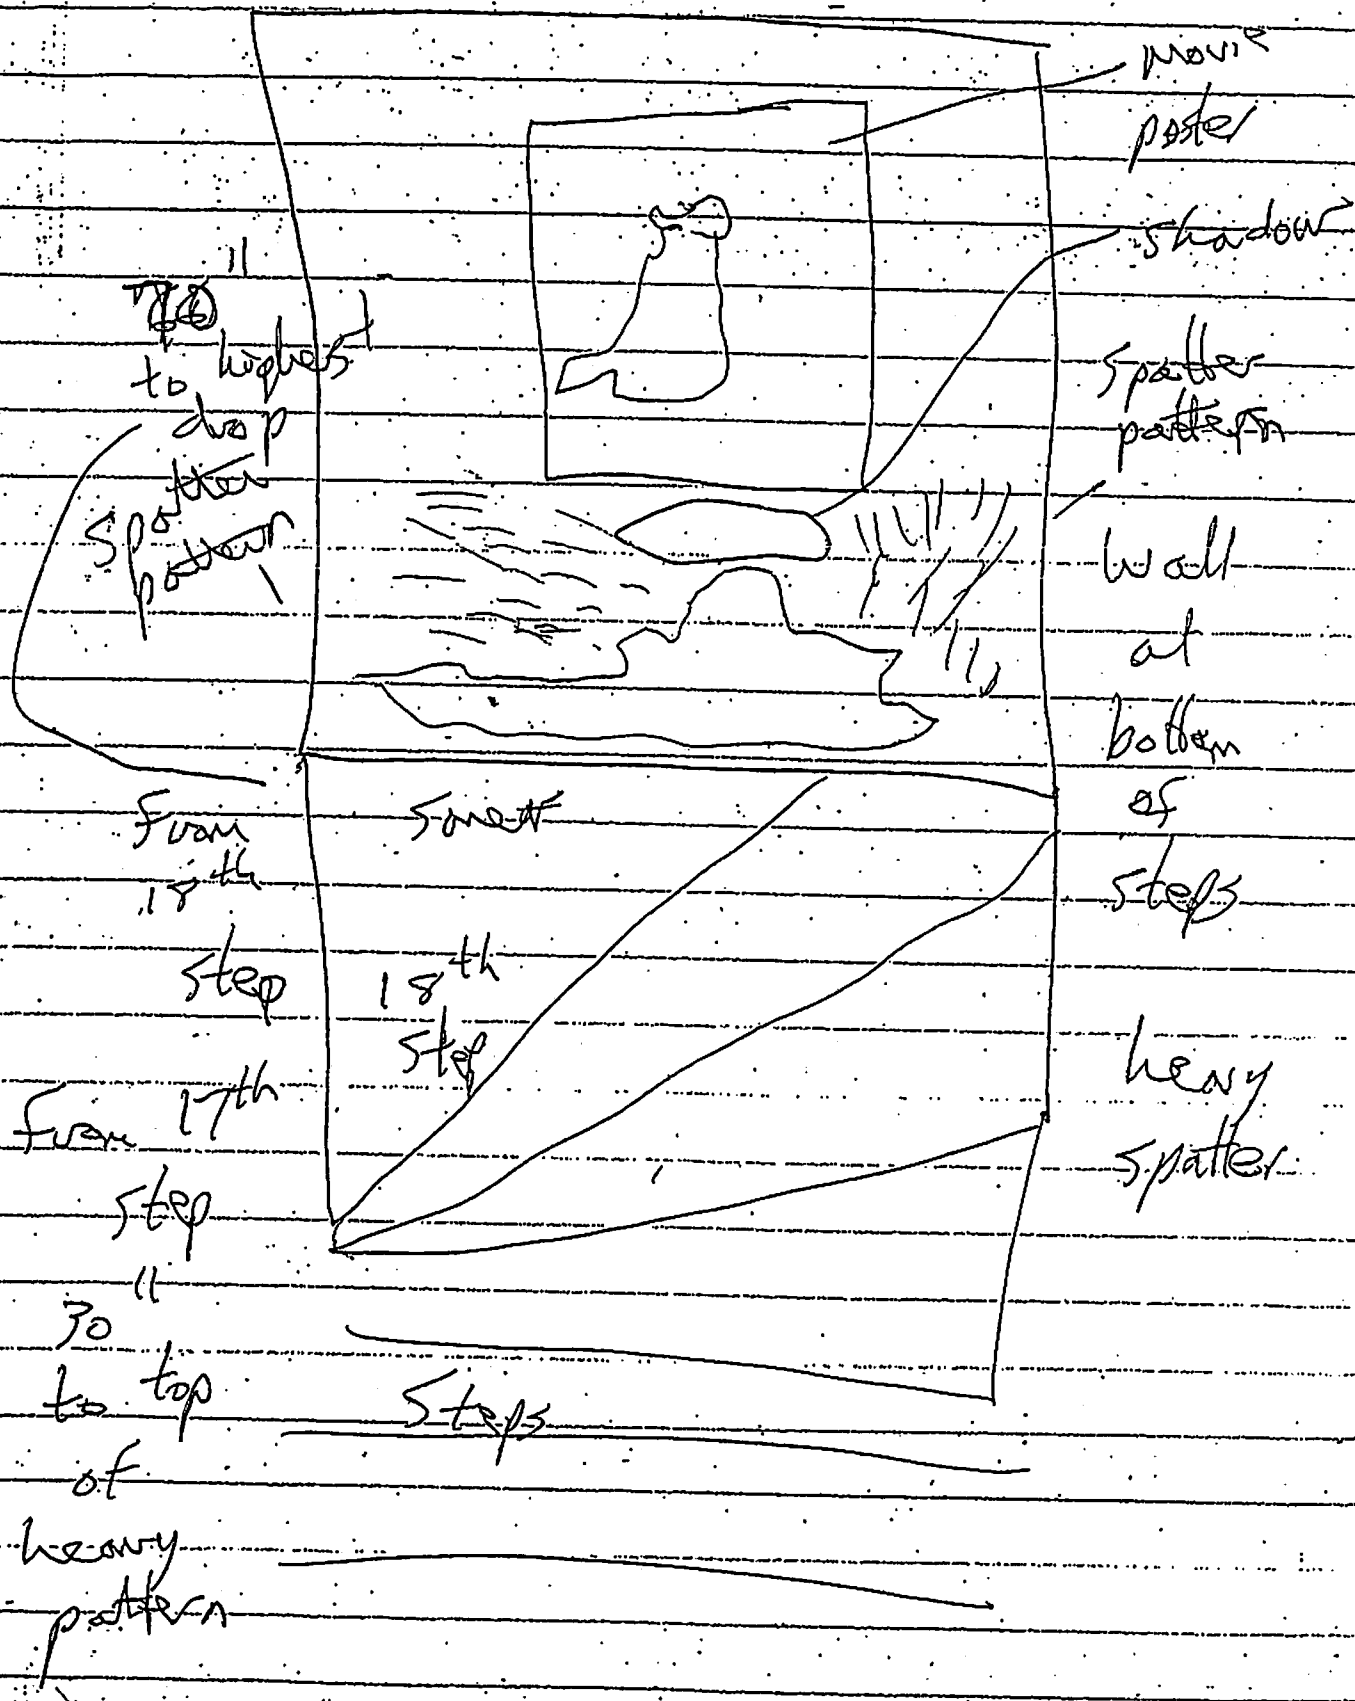 movie
poster
shadow
spatter
pattern
wall
at
bottom
of
steps
heavy
spatter
to highest
drop
spatter
pattern
from
18th
step
from 17th
step
30"
to top
of
heavy
pattern
18th
step
Steps